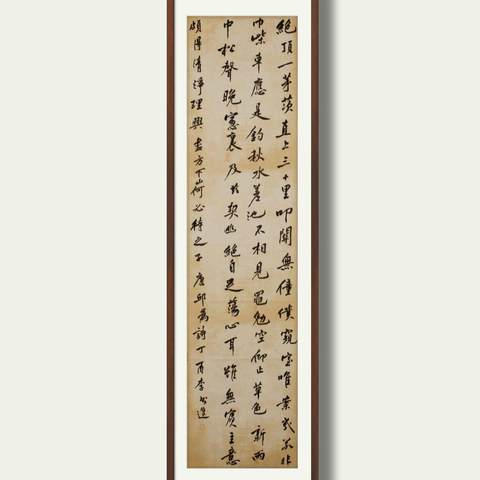 絕頂一茅茨直上三十里叩關無僮僕窺室唯案几若非
巾柴車應是釣秋水差池不相見黽勉空仰止草色新雨
中松聲晚窻裏及茲契幽絕自足蕩心耳雖無賓主意
頗得清淨理興盡方下山何必待之子唐邱為詩丁酉李